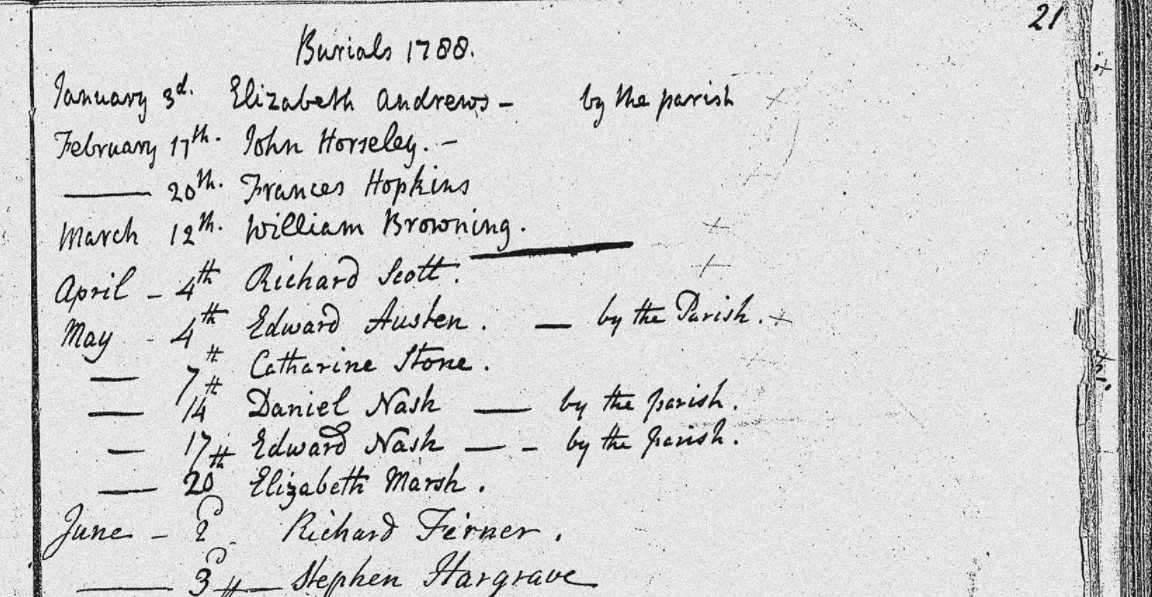 21
Burials 1788.
January 3d. Elizabeth Andrews - by the parish
February 17th. John Horseley. -
—— 20th. Frances Hopkins
March 12th. William Browning.
April - 4th Richard Scott.
May - 4th Edward Austen. — by the Parish.
— 7th Catharine Stone.
— 14th Daniel Nash — by the parish.
— 17th Edward Nash — - by the parish.
— 20th Elizabeth Marsh.
June - 2d Richard Firner.
—— 3d — Stephen Hargrave